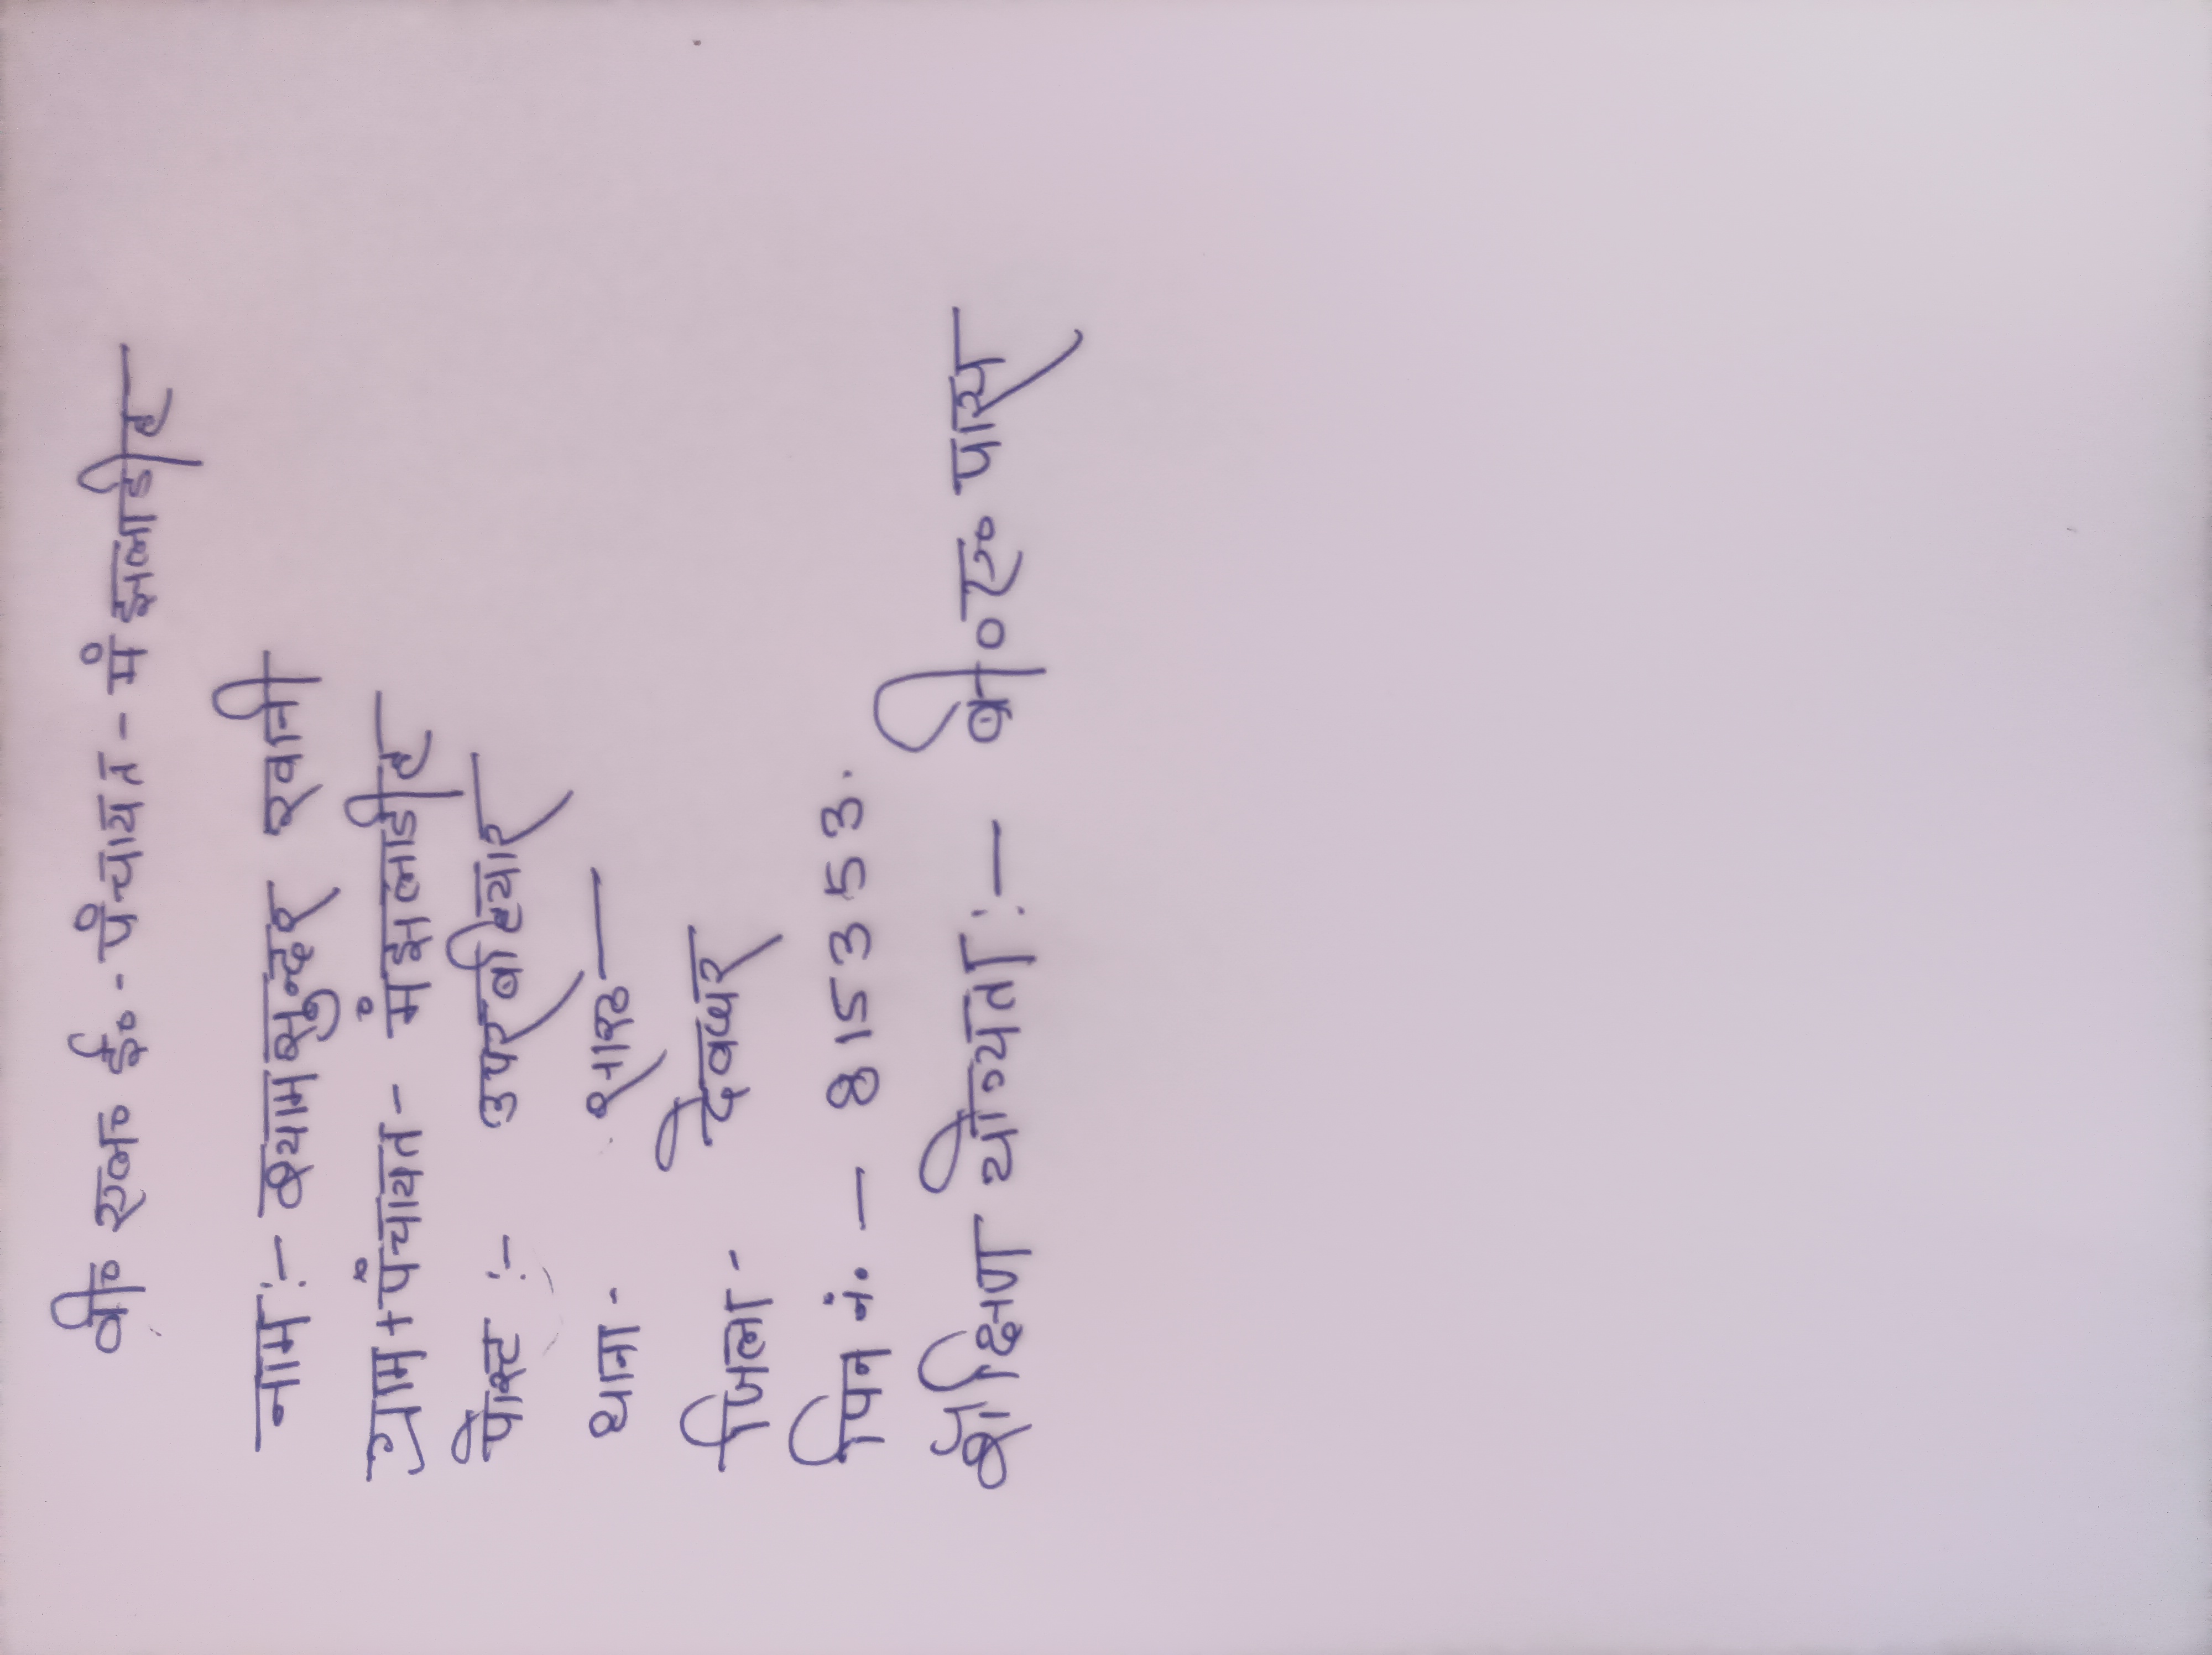 वी एल ई॰ - पंचायत - मंझलाडीह
नाम :- श्यामसुन्दर रवानी
ग्राम + पंचायत - मंझलाडीह
पोस्ट :-
थाना - सारठ —
जिला - देवघर
पिन नं. — 815353.
शैक्षिण योग्यता :— बी० ए० पास